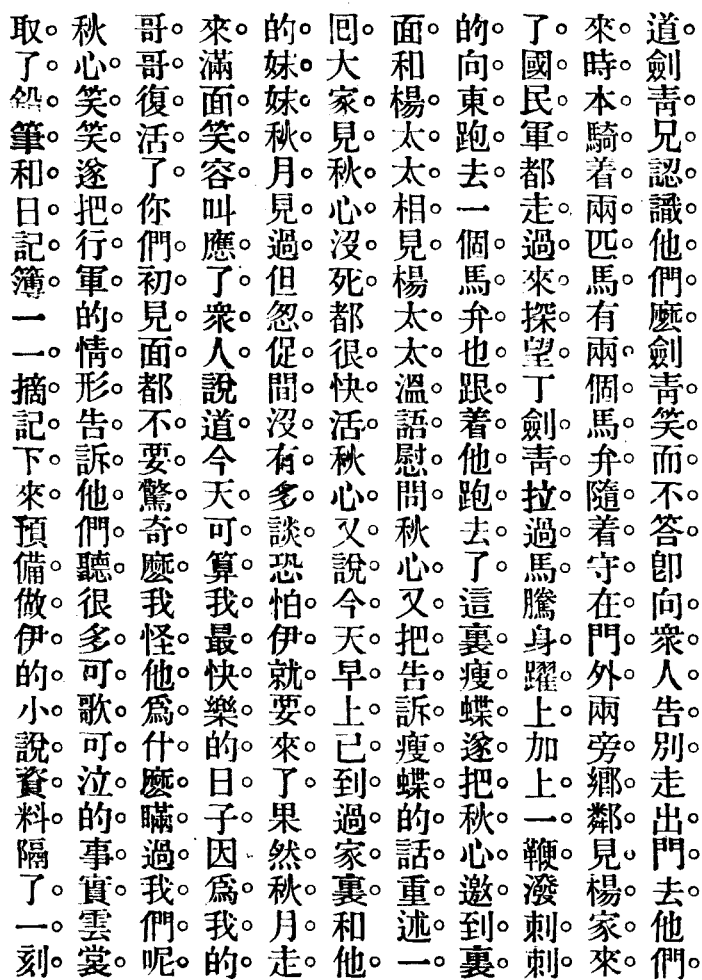 道劍靑兄認識他們麽劍靑笑而不答卽向衆人告別走出門去他們
來時本騎着兩匹馬有兩個馬弁隨着守在門外兩旁鄉鄰見楊家來
了國民軍都走過來探望丁劍靑拉過馬騰身躍上加上一鞭潑剌剌
的向東跑去一個馬弁也跟着他跑去了這裏瘦蝶遂把秋心邀到裏
面和楊太太相見楊太太溫語慰問秋心又把告訴瘦蝶的話重述一
囘大家見秋心沒死都很快活秋心又說今天早上已到過家裏和他
的妹妹秋月見過但怱促間沒有多談恐怕伊就要來了果然秋月走
來滿面笑容叫應了衆人說道今天可算我最快樂的日子因爲我的
哥哥復活了你們初見面都不要驚奇麽我怪他爲什麽瞞過我們呢
秋心笑笑遂把行軍的情形告訴他們聽很多可歌可泣的事實雲裳
取了鉛筆和日記簿一一摘記下來預備做伊的小說資料隔了一刻